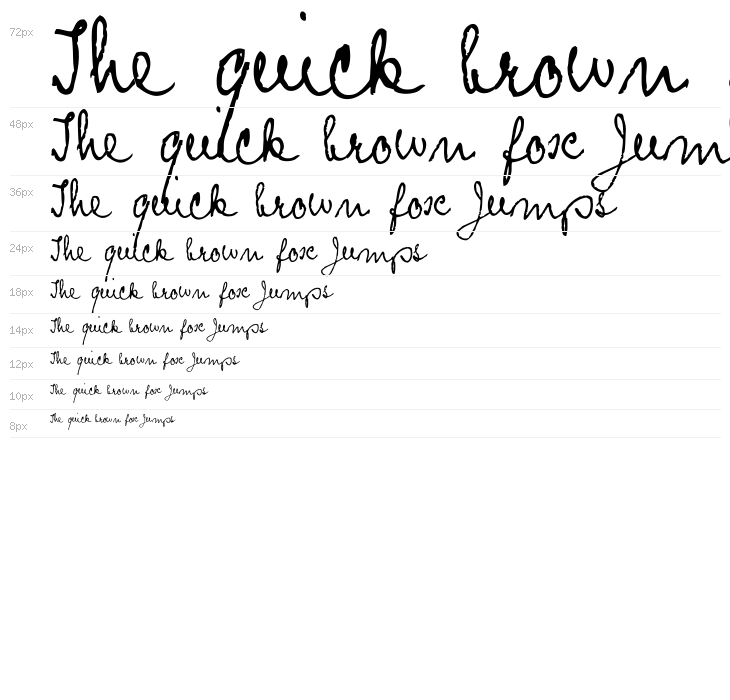 72px The quick brown
48px The quick brown fox Jum
36px The quick brown fox Jumps
24px The quick brown fox Jumps
18px The quick brown fox Jumps
14px The quick brown fox Jumps
12px The quick brown fox Jumps
10px The quick brown fox Jumps
8px The quick brown fox Jumps